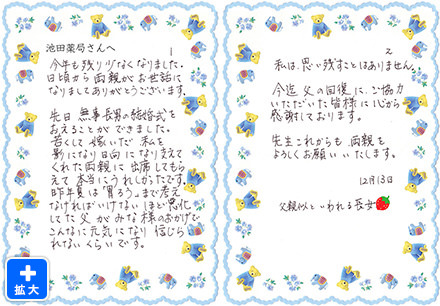 池田薬局さんへ
1
今年も残り少なくなりました。
日頃から両親がお世話に
なりましてありがとうございます。
先日 無事長男の結婚式を
おえることができました。
若くして嫁いだ私を
影になり日向になり支えて
くれた両親に出席してもら
えて本当にうれしかったです。
昨年夏は「胃ろう」まで考え
なければいけないほど悪化
してた父がみな様のおかげで
こんなに元気になり信じら
れないくらいです。
2
私は、思い残すことはありません。
今迄 父の回復に、ご協力
いただいた皆様に心から
感謝しております。
先生これからも 両親を
よろしくお願いいたします。
12月13日
父親似といわれる長女
拡大